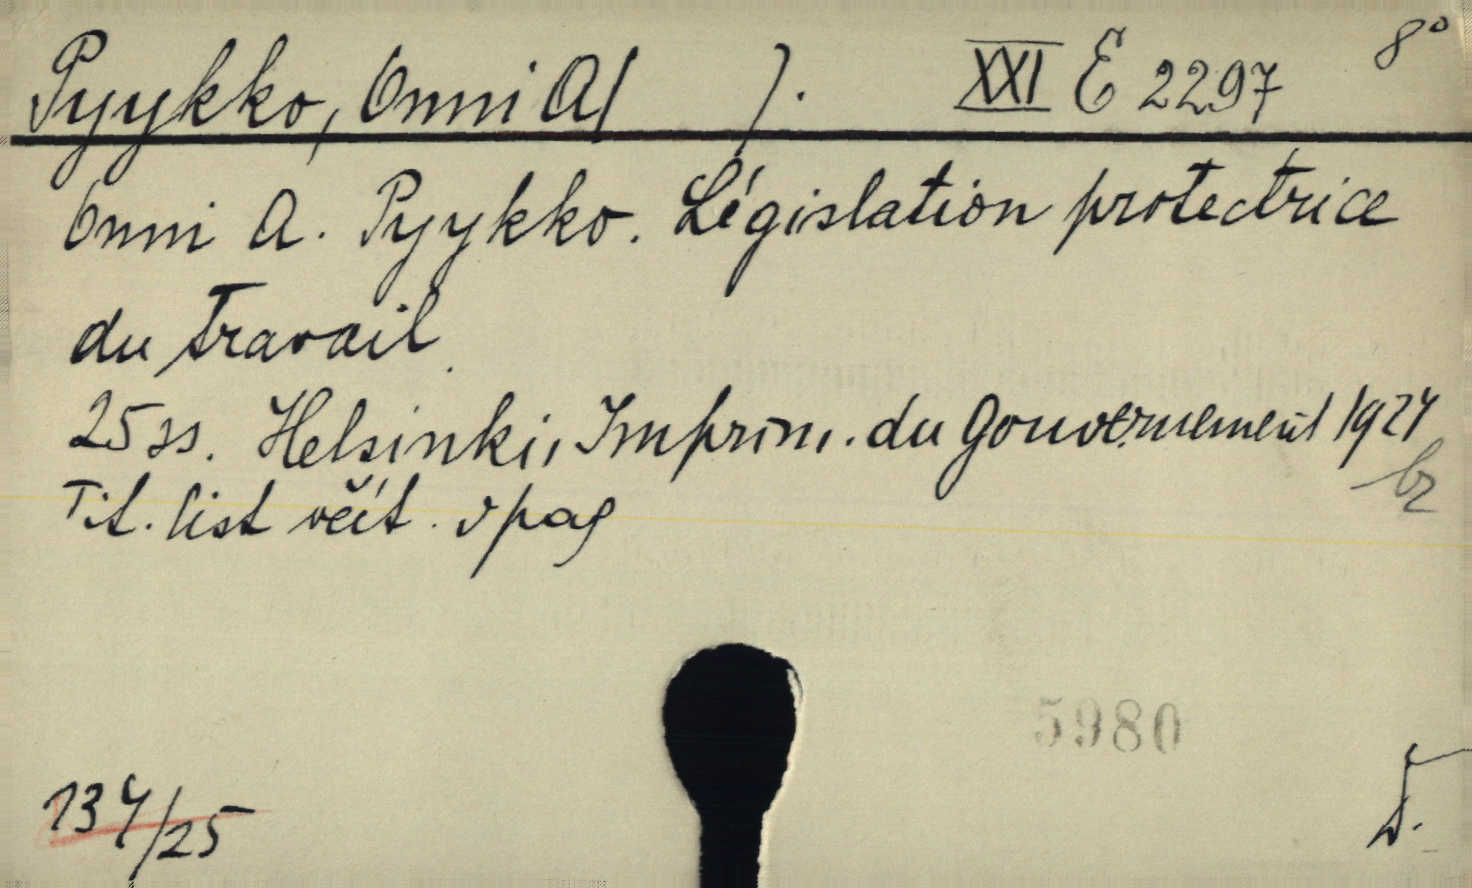 Pyykko, Onni A( ). XXI E 2297 8°
Onni A. Pyykko. Législation protectrice
du travail.
25 ss. Helsinki, Imprim. du Gouvernement 1924
br
Tit. list včít. v pag
5980
134/25